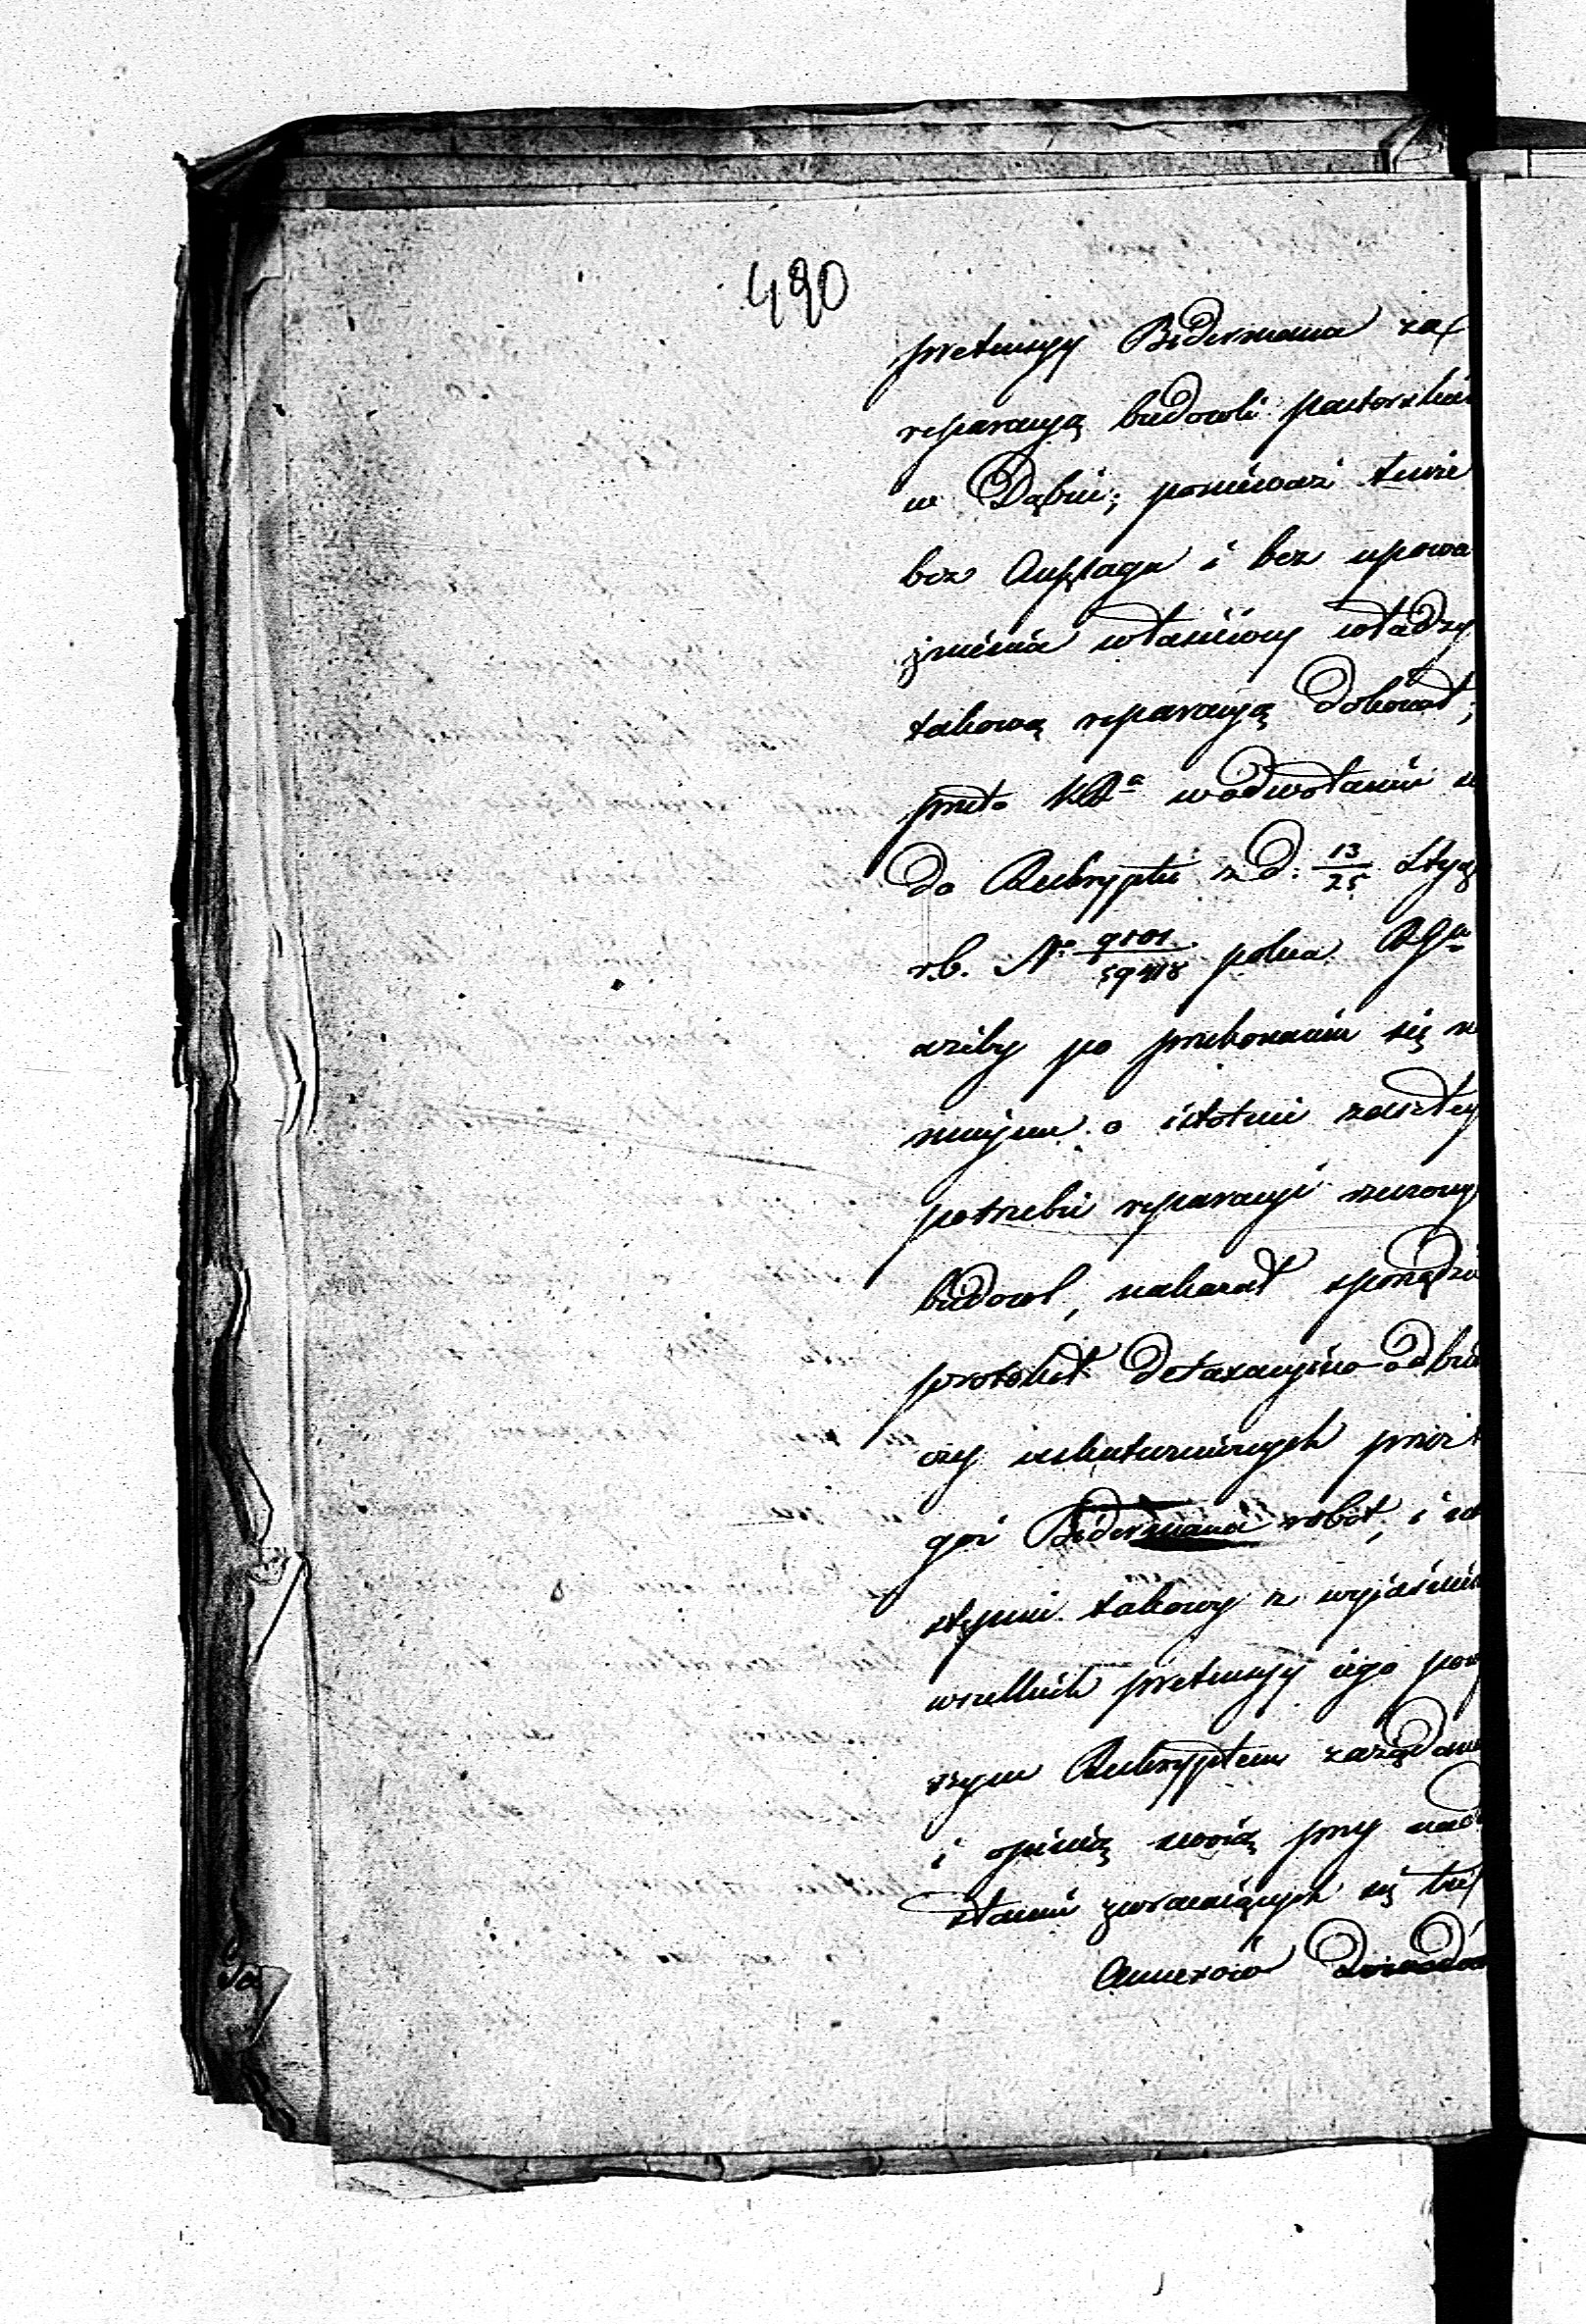 490
pretensyy Bidermana za
reparacyą budowli pastorskich
w Dąbiu; ponieważ tenże
bez Anszlagu i bez upowa
żnienia właściwey władzy
takową reparacyą dokonał;
przeto KRa w odwołaniu s
do Reskryptu z d. 13/25 Stycz
r.b. No 9801/59418 poleca RGu
ażeby po przekonaniu się n
mnijem o istotnie zaszłey
potrzebie reparacyi rzeczony
budowl, nakazał sporządzi
protokół detaxacyino-odbio
czy uskutecznionych przez t
goż Bidermana robot, i na
stępnie takowy z wyjaśnie
wszelkich pretensyy iego pow
szym Reskryptem zażądane
i opinią swoią przy nade
słaniu zwracaiących się tu
Annexów